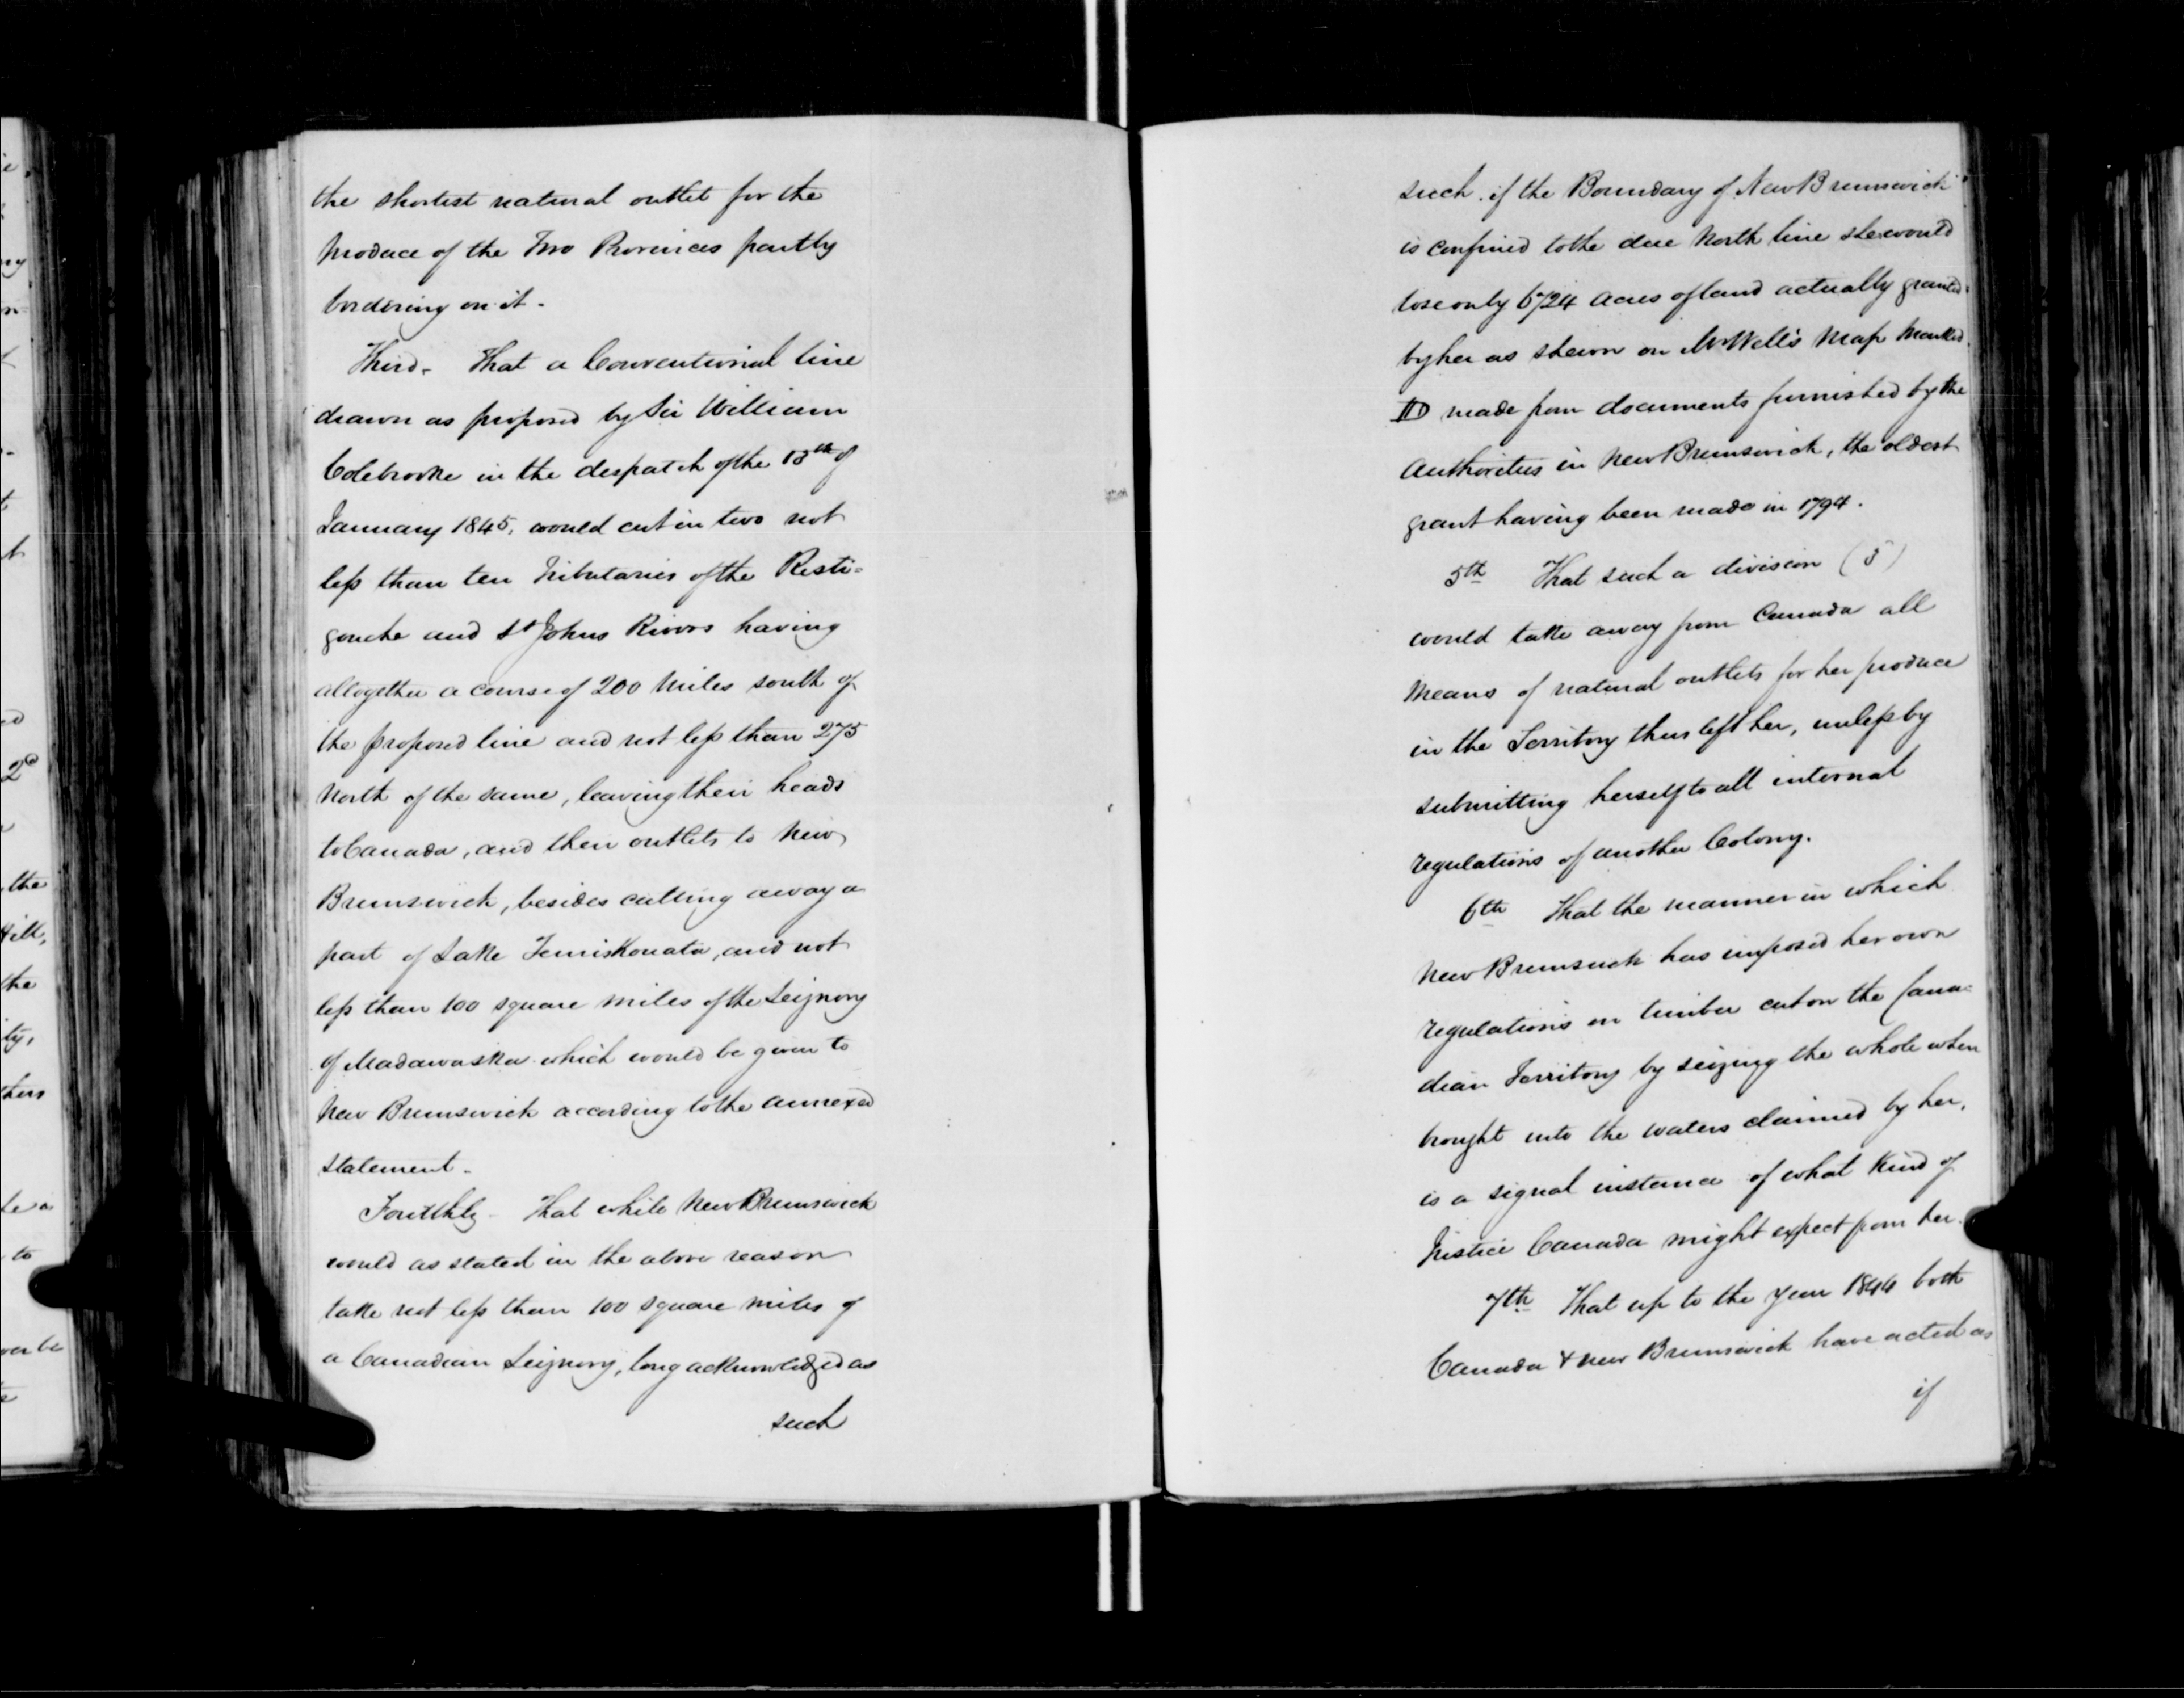 the shortest natural outlet for the
produce of the Two Provinces partly
bordering on it -
Third - That a Conventional line
drawn as proposed by Sir William
Colebrooke in the despatch of the 13th of
January 1845, would cut in two not
less than ten Tributaries of the Resti=
gouche and St Johns Rivers having
altogether a course of 200 Miles south of
the proposed line and not less than 275
North of the same, leaving their heads
to Canada, and their outlets to New
Brunswick, besides cutting away a
part of Lake Temiskouata, and not
less than 100 square miles of the Seignory
of Madawaska which would be given to
New Brunswick according to the annexed
statement -
Fourthly - That while New Brunswick
would as stated in the above reason
take not less than 100 square miles of
a Canadian Seignory, long acknowledged as
such
such, if the Boundary of New Brunswick
is confined to the due North line she would
lose only 6724 Acres of land actually granted
by her as shewn on Mr Wells Map Marked
made from documents furnished by the
Authorities in New Brunswick, the oldest
grant having been made in 1794.
5th That such a division (5)
would take away from Canada all
Means of natural outlets for her produce
in the Territory thus left her, unless by
submitting herself to all internal
regulations of another Colony.
6th That the manner in which
New Brunsuick has imposed her own
regulations on timber cut on the Cana=
dian Territory by seizing the whole when
brought into the waters claimed by her,
is a signal instance of what Kind of
Justice Canada might expect from her.
7th That up to the year 1844 both
Canada & New Brunswick have acted as
if